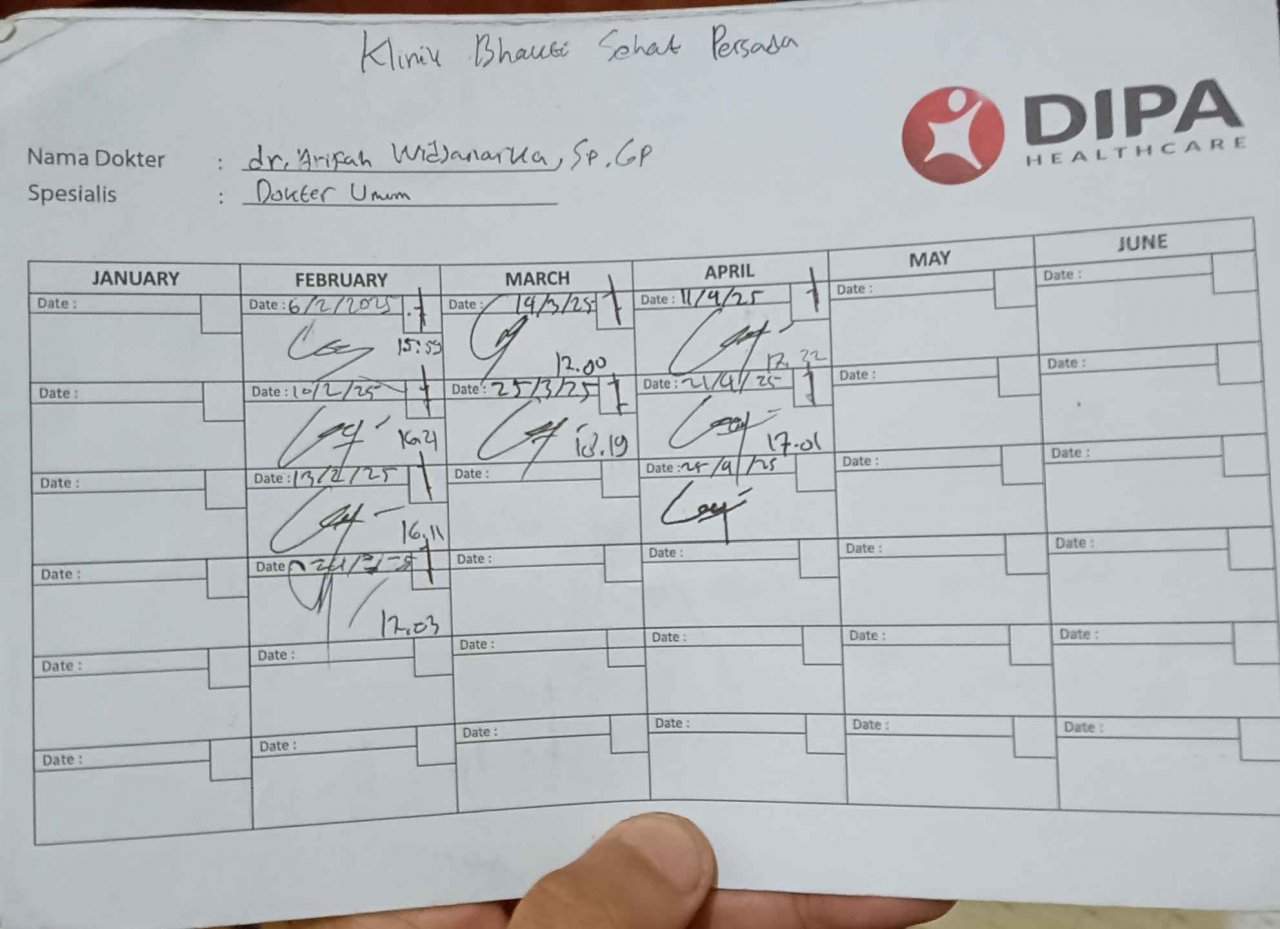 Klinik Bhakti Sehat Persada
DIPA
HEALTHCARE
Nama Dokter : dr. Arifah Widjanarka, Sp.GP
Spesialis : Dokter Umum
JANUARY FEBRUARY MARCH APRIL MAY JUNE
Date : Date : 6/2/2025 Date : 14/3/25 Date : 11/4/25 Date : Date :
15:59 12.00 12.22
Date : Date : 10/2/25 Date : 25/3/25 Date : 21/4/25 Date : Date :
16.21 18.19 17.01
Date : Date : 13/2/25 Date : Date : 25/4/25 Date : Date :
16.11
Date : Date Date : Date : Date : Date :
12.03
Date : Date : Date : Date : Date : Date :
Date : Date : Date : Date : Date : Date :